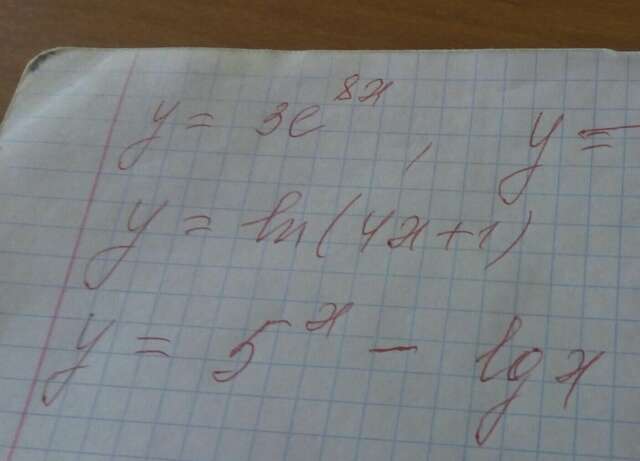 y = 3e^{8x}, y =
y = ln(4x+1)
y = 5^x - lg x